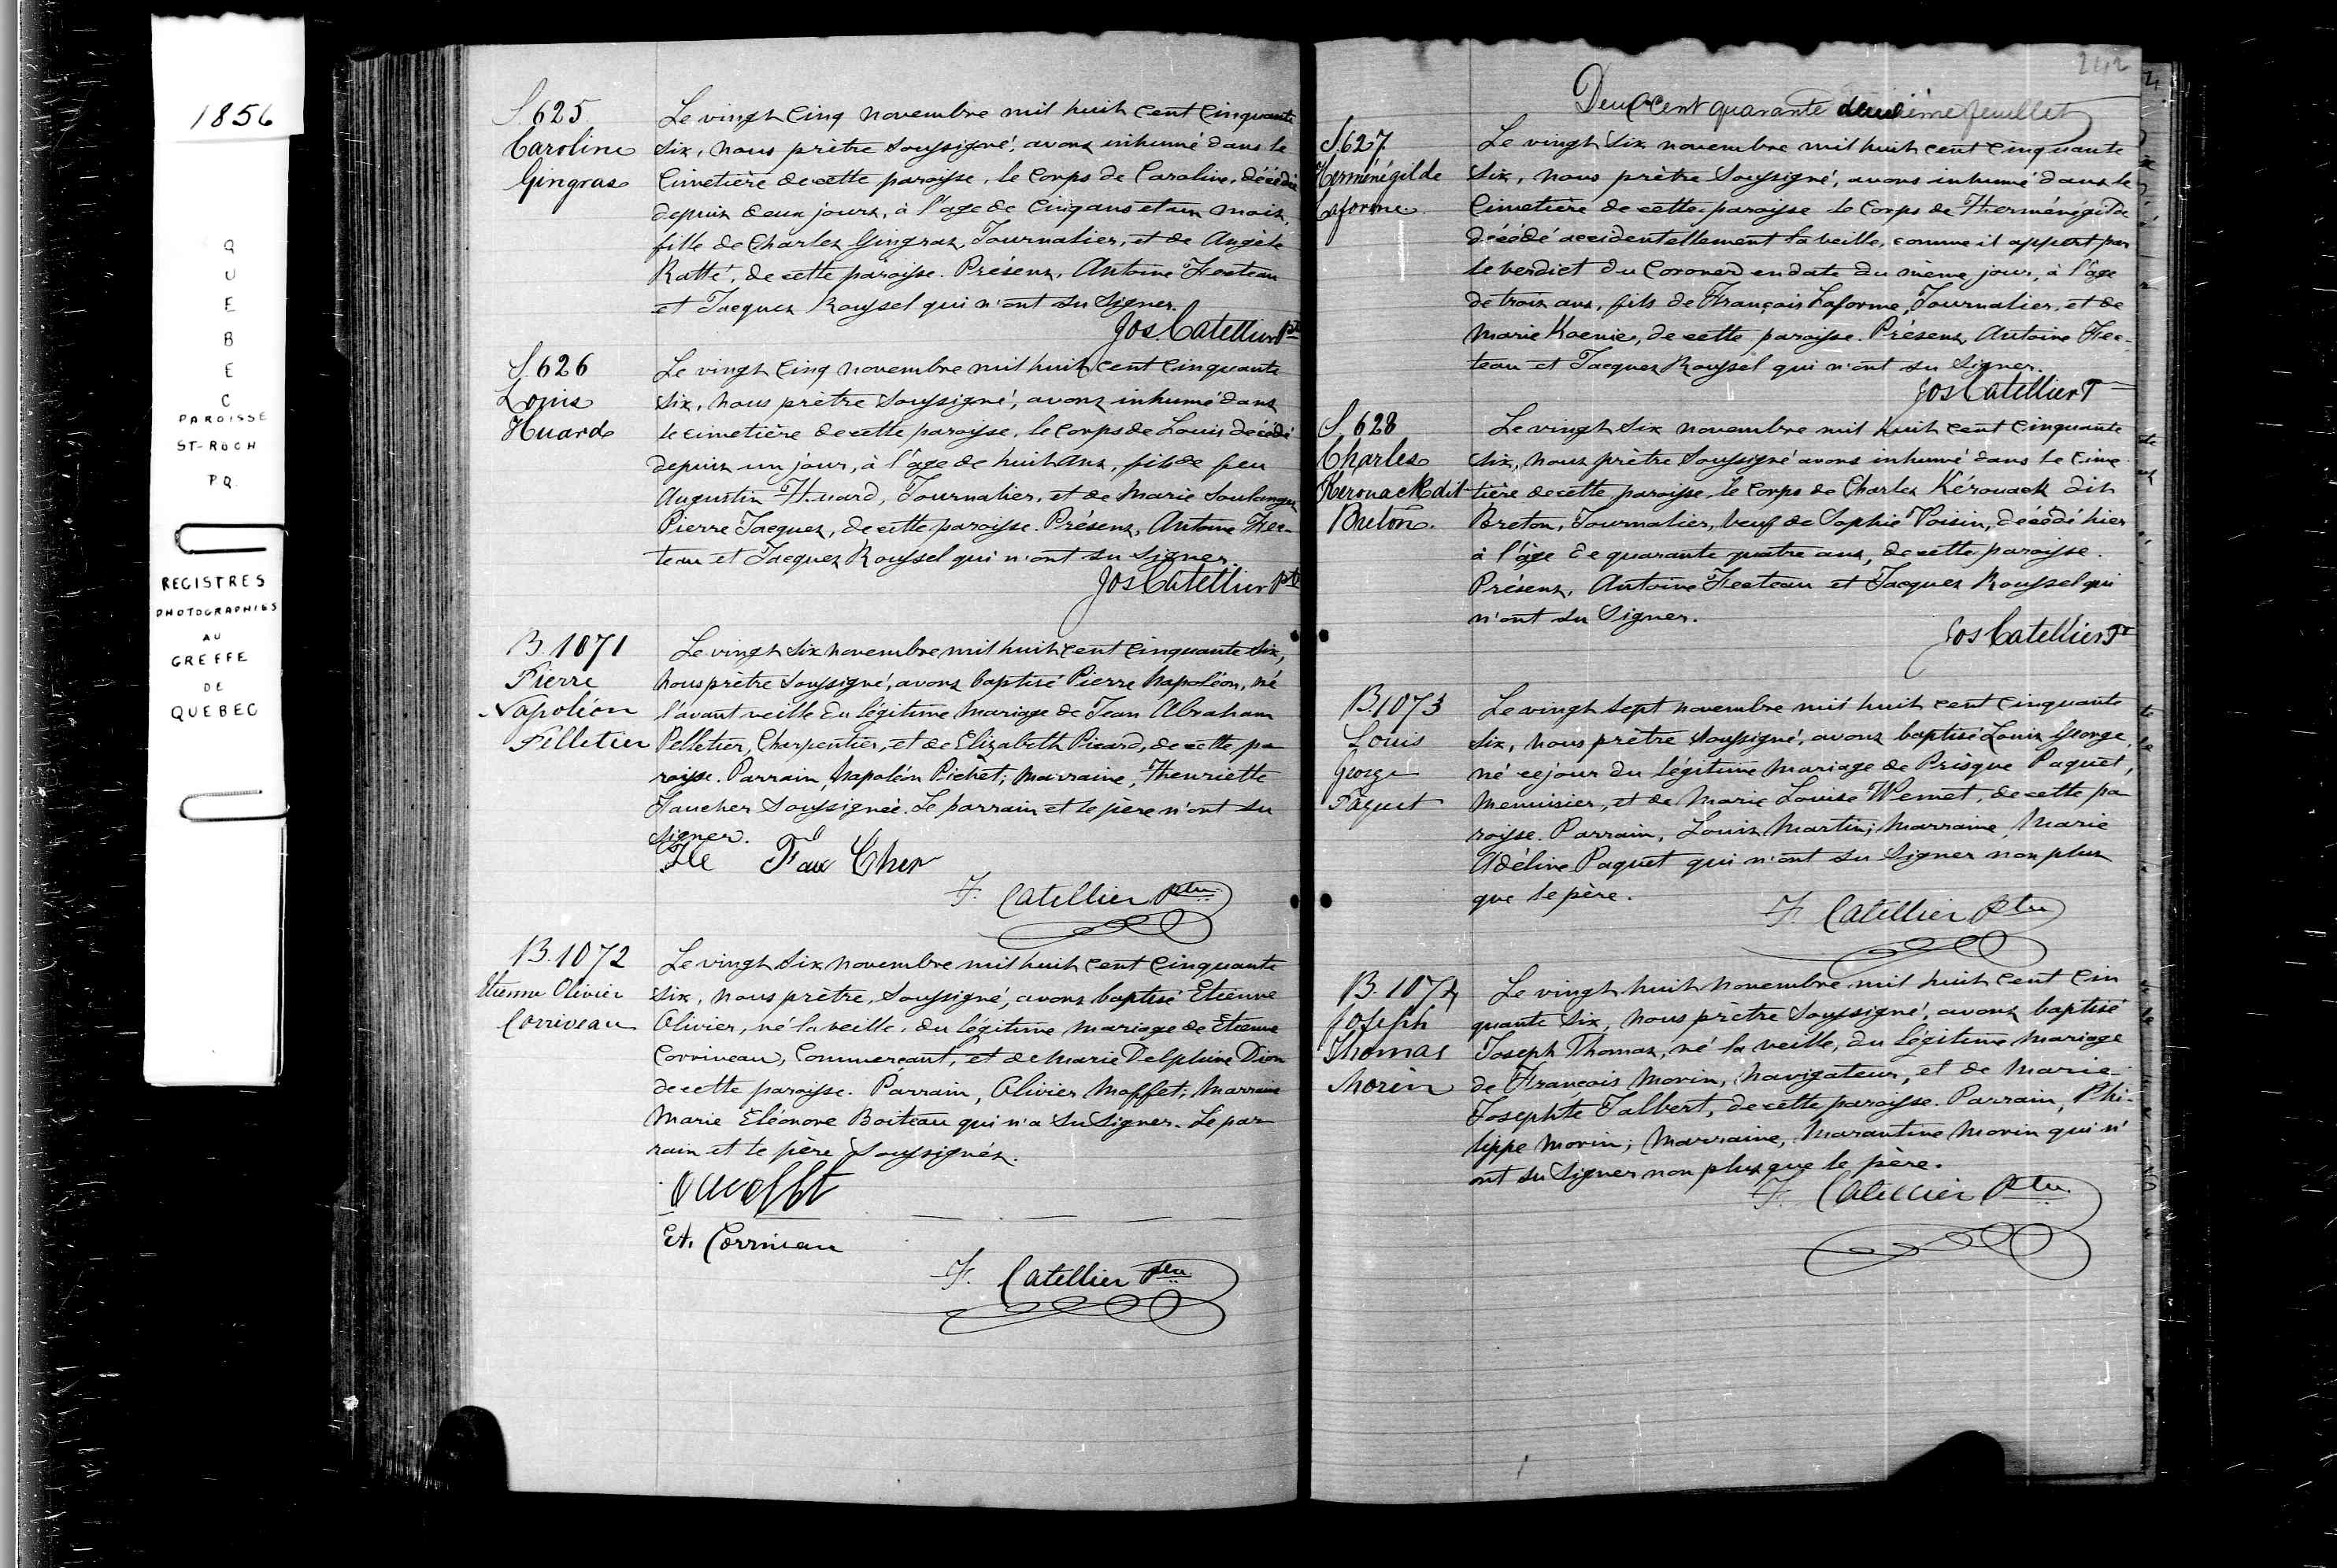 1856
QUEBEC
PAROISSE
ST-ROCH
PQ
REGISTRES
PHOTOGRAPHIES
AU
GREFFE
DE
QUEBEC
S. 625
Caroline
Gingras
Le vingt cinq novembre mil huit cent cinquante
six, nous prêtre soussigné, avons inhumé dans le
cimetière de cette paroisse, le corps de Caroline, décédée
depuis deux jours, à l'age de cinq ans et un mois,
fille de Charles Gingras, Journalier, et de Angèle
Ratté, de cette paroisse. Présens, Antoine Fecteau
et Jacques Roussel qui n'ont su signer.
Jos. Catellier Ptr
S. 626
Louis
Huard
Le vingt cinq novembre mil huit cent cinquante
six, nous prêtre soussigné, avons inhumé dans
le cimetière de cette paroisse, le corps de Louis décédé
depuis un jour, à l'âge de huit ans, fils de feu
Augustin Huard, Journalier, et de Marie Soulange
Pierre Jacques, de cette paroisse. Présens, Antoine Fec-
teau et Jacques Roussel qui n'ont su signer.
Jos Catellier Pt
B. 1071
Pierre
Napoléon
Pelletier
Le vingt six novembre mil huit cent cinquante six,
nous prêtre soussigné, avons baptisé Pierre Napoléon, né
l'avant veille du légitime mariage de Jean Abraham
Pelletier, Charpentier, et de Elizabeth Picard, de cette pa
roisse. Parrain, Napoléon Pichet; marraine, Henriette
Faucher soussignée. Le parrain et le père n'ont su
signer.
He Fau Cher
F. Catellier Ptre
B. 1072
Etienne Olivier
Corriveau
Le vingt six novembre mil huit cent cinquante
six, nous prêtre, soussigné, avons baptisé Etienne
Olivier, né la veille, du légitime mariage de Etienne
Corriveau, Commerçant, et de Marie Delphine Dion
de cette paroisse. Parrain, Olivier Moffet; Marraine
Marie Eléonore Boiteau qui n'a su signer. Le par
rain et le père soussignés.
Et. Corriveau
F. Catellier Ptre
242
Deux cent quarante deuxième feuillet
S. 627
Herménégilde
Laforme
Le vingt six novembre mil huit cent cinquante
six, nous prêtre soussigné, avons inhumé dans le
cimetière de cette paroisse le corps de Herménégilde
décédé accidentellement la veille, comme il appert par
le verdict du Coroner en date du même jour, à l'âge
de trois ans, fils de François Laforme, Journalier, et de
Marie Koenie, de cette paroisse. Présens, Antoine Fec-
teau et Jacques Roussel qui n'ont su signer.
Jos Catellier Ptr
S. 628
Charles
Kerouack dit
Breton.
Le vingt six novembre mil huit cent cinquante
six, nous prêtre soussigné avons inhumé dans le cime
tière de cette paroisse, le corps de Charles Kérouack dit
Breton, Journalier, veuf de Sophie Voisin, décédé hier
à l'âge de quarante quatre ans, de cette paroisse.
Présens, Antoine Fecteau et Jacques Roussel qui
n'ont su signer.
Jos Catellier Ptr
B. 1073
Louis
George
Paquet
Le vingt sept novembre mil huit cent cinquante
six, nous prêtre soussigné, avons baptisé Louis George,
né ce jour du légitime mariage de Prisque Paquet,
Menuisier, et de Marie Louise Wemet, de cette pa
roisse. Parrain, Louis Martin; Marraine, Marie
Adéline Paquet qui n'ont su signer non plus
que le père.
F. Catellier Ptre
B. 1074
Joseph
Thomas
Morin
Le vingt huit novembre mil huit cent cin
quante six, nous prêtre soussigné, avons baptisé
Joseph Thomas, né la veille, du légitime mariage
de François Morin, Navigateur, et de Marie-
Josephte Talbert, de cette paroisse. Parrain, Phi-
lippe Morin; Marraine, Marantine Morin qui n'
ont su signer non plus que le père.
F. Catellier Ptre